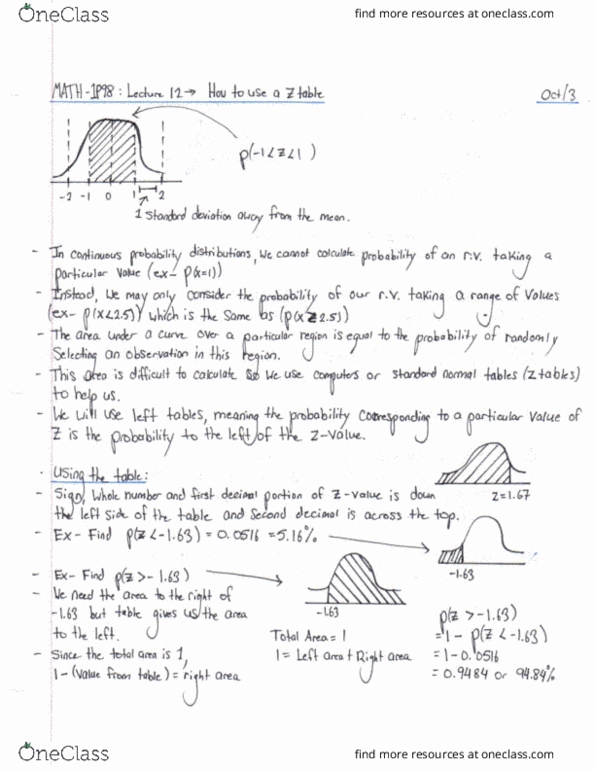 OneClass
find more resources at oneclass.com
MATH-1P98: Lecture 12→ How to use a Z table
Oct/3
p(-1<Z<1)
-2 -1 0 1 2
1 Standard deviation away from the mean.
- In continuous probability distributions, we cannot calculate probability of an r.v. taking a
particular value (ex- p(x=1))
- Instead, we may only consider the probability of our r.v. taking a range of values
(ex- p(x<2.5)) which is the same as (p(x≤2.5))
- The area under a curve over a particular region is equal to the probability of randomly
Selecting an observation in this region.
- This area is difficult to calculate so we use computers or standard normal tables (Z tables)
to help us.
- We will use left tables, meaning the probability corresponding to a particular value of
Z is the probability to the left of the Z-value.
· Using the table:
- Sign, whole number and first decimal portion of Z-value is down
the left side of the table and second decimal is across the top.
Z=1.67
- Ex- Find p(Z<-1.63) = 0.0516 = 5.16%
-1.63
- Ex- Find p(Z>-1.63)
- We need the area to the right of
-1.63 but table gives us the area
to the left.
- Since the total area is 1,
1-(value from table) = right area
-1.63
Total Area = 1
1 = Left area + Right area
p(Z>-1.63)
= 1 - p(Z<-1.63)
= 1-0.0516
= 0.9484 or 94.84%
OneClass
find more resources at oneclass.com